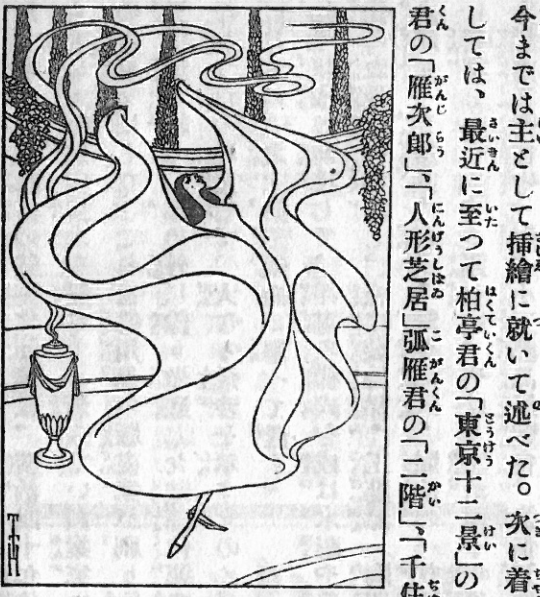 今までは主として挿繪に就いて述べた。次に着
しては、最近に至つて柏亭君の「東京十二景」の
君の「雁次郎」、「人形芝居」弧雁君の「二階」、「千住